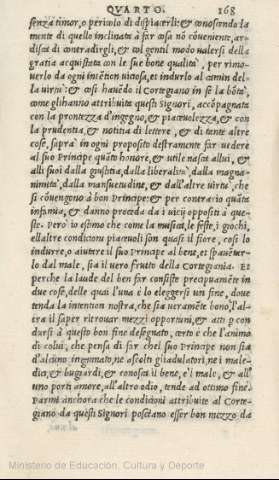 QVARTO. 168
senza timor, o periculo di dispiacerli: & conoscendo la
mente di quello inclinata à far cosa nò cōueniente, ar-
disca di contradirgli, & col gentil modo valersi della
gratia acquistata con le sue bone qualità, per rimo-
uerlo da ogni intētion viciosa, et indurlo al camin del-
la virtù: & così hauēdo il Cortegiano in se la bōtà,
come gli hanno attribuita questi Signori, accōpagnata
con la prontezza d'ingegno, & piaceuolezza, & con
la prudentia, & notitia di lettere, & di tante altre
cose, saprà in ogni proposito destramente far vedere
al suo Principe quāto honore, & utile nasca allui, &
alli suoi dalla giustitia, dalla liberalità, dalla magna-
nimità, dalla mansuetudine, & dall'altre virtù, che
si cōuengono à bon Principe: & per contrario quāta
infamia, & danno proceda da i vicij oppositi à que-
ste. Però io estimo che come la musica, le feste, i giochi,
ell'altre conditioni piaceuoli son quasi il fiore, così lo
indurre, o aiutare il suo Principe al bene, et spauētar-
lo dal male, sia il vero frutto della Cortegiania. Et
perche la laude del ben far consiste precipuamēte in
due cose, delle quai l'una è lo eleggersi un fine, doue
tenda la intention nostra, che sia veramēte bono, l'al-
tra il saper ritrouar mezzi opportuni, & atti p con
dursi à questo bon fine desegnato, certo è che l'animo
di colui, che pensa di far chel suo Principe non sia
d'alcuno ingannato, ne ascolti gli adulatori, ne i male-
dici, & bugiardi, & conosca il bene, e'l male, & all'
uno porti amore, all'altro odio, tende ad ottimo fine.
Parmi anchora che le conditioni attribuite al Corte-
giano da questi Signori possano esser bon mezzo da
Ministerio de Educación, Cultura y Deporte